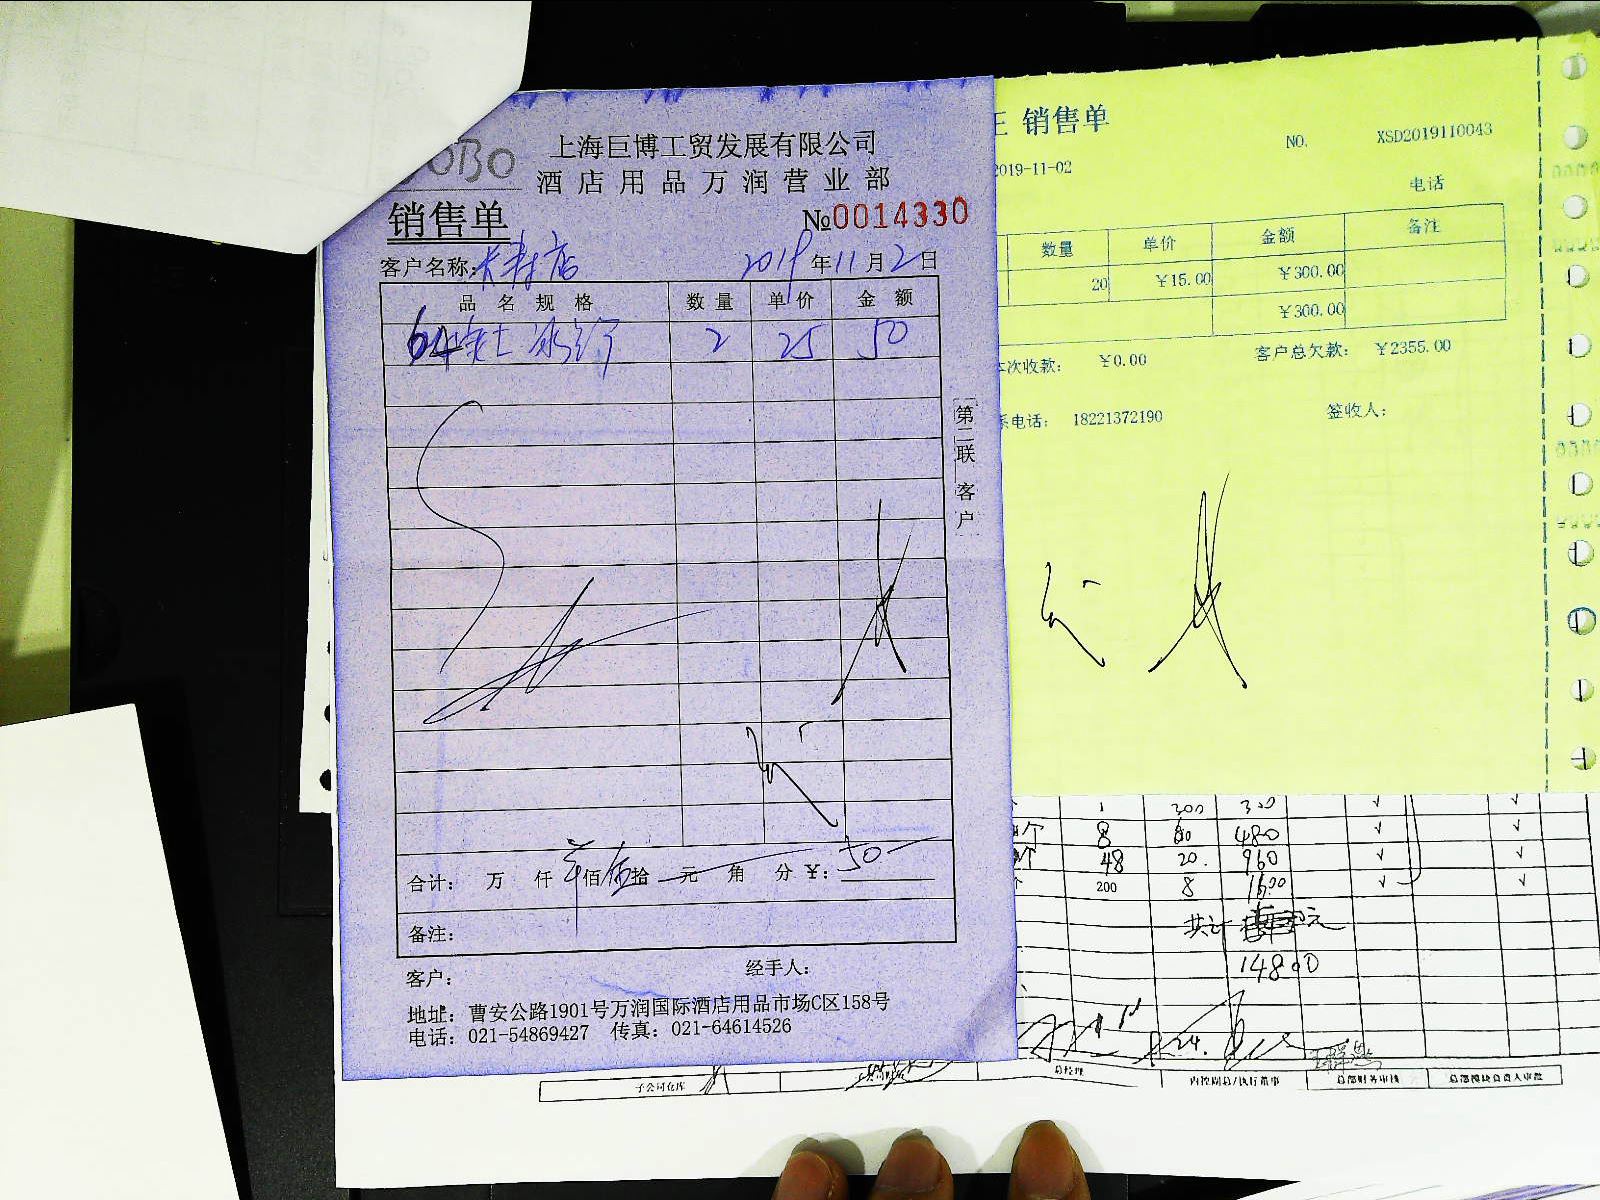 OBO
上海巨博工贸发展有限公司
酒店用品万润营业部
销售单
№0014330
客户名称: 大 店 2019年11月2日
品名规格 数量 单价 金额
64 2 25 50
第二联 客户
合计: 万 仟 佰 伍拾 元 角 分 ¥: 50
备注:
客户: 经手人:
地址: 曹安公路1901号万润国际酒店用品市场C区158号
电话: 021-54869427 传真: 021-64614526
销售单
NO. XSD2019110043
2019-11-02
电话
数量 单价 金额 备注
20 ¥15.00 ¥300.00
¥300.00
次收款: ¥0.00 客户总欠款: ¥2355.00
系电话: 18221372190 签收人:
1 300 300 √ √
个 8 60 480 √ √
个 48 20. 960 √ √
个 200 8 1600 √ √
共计 元
14800
子公司仓库 总经理 内控副总/执行董事 总部财务审核 总部模块负责人审批